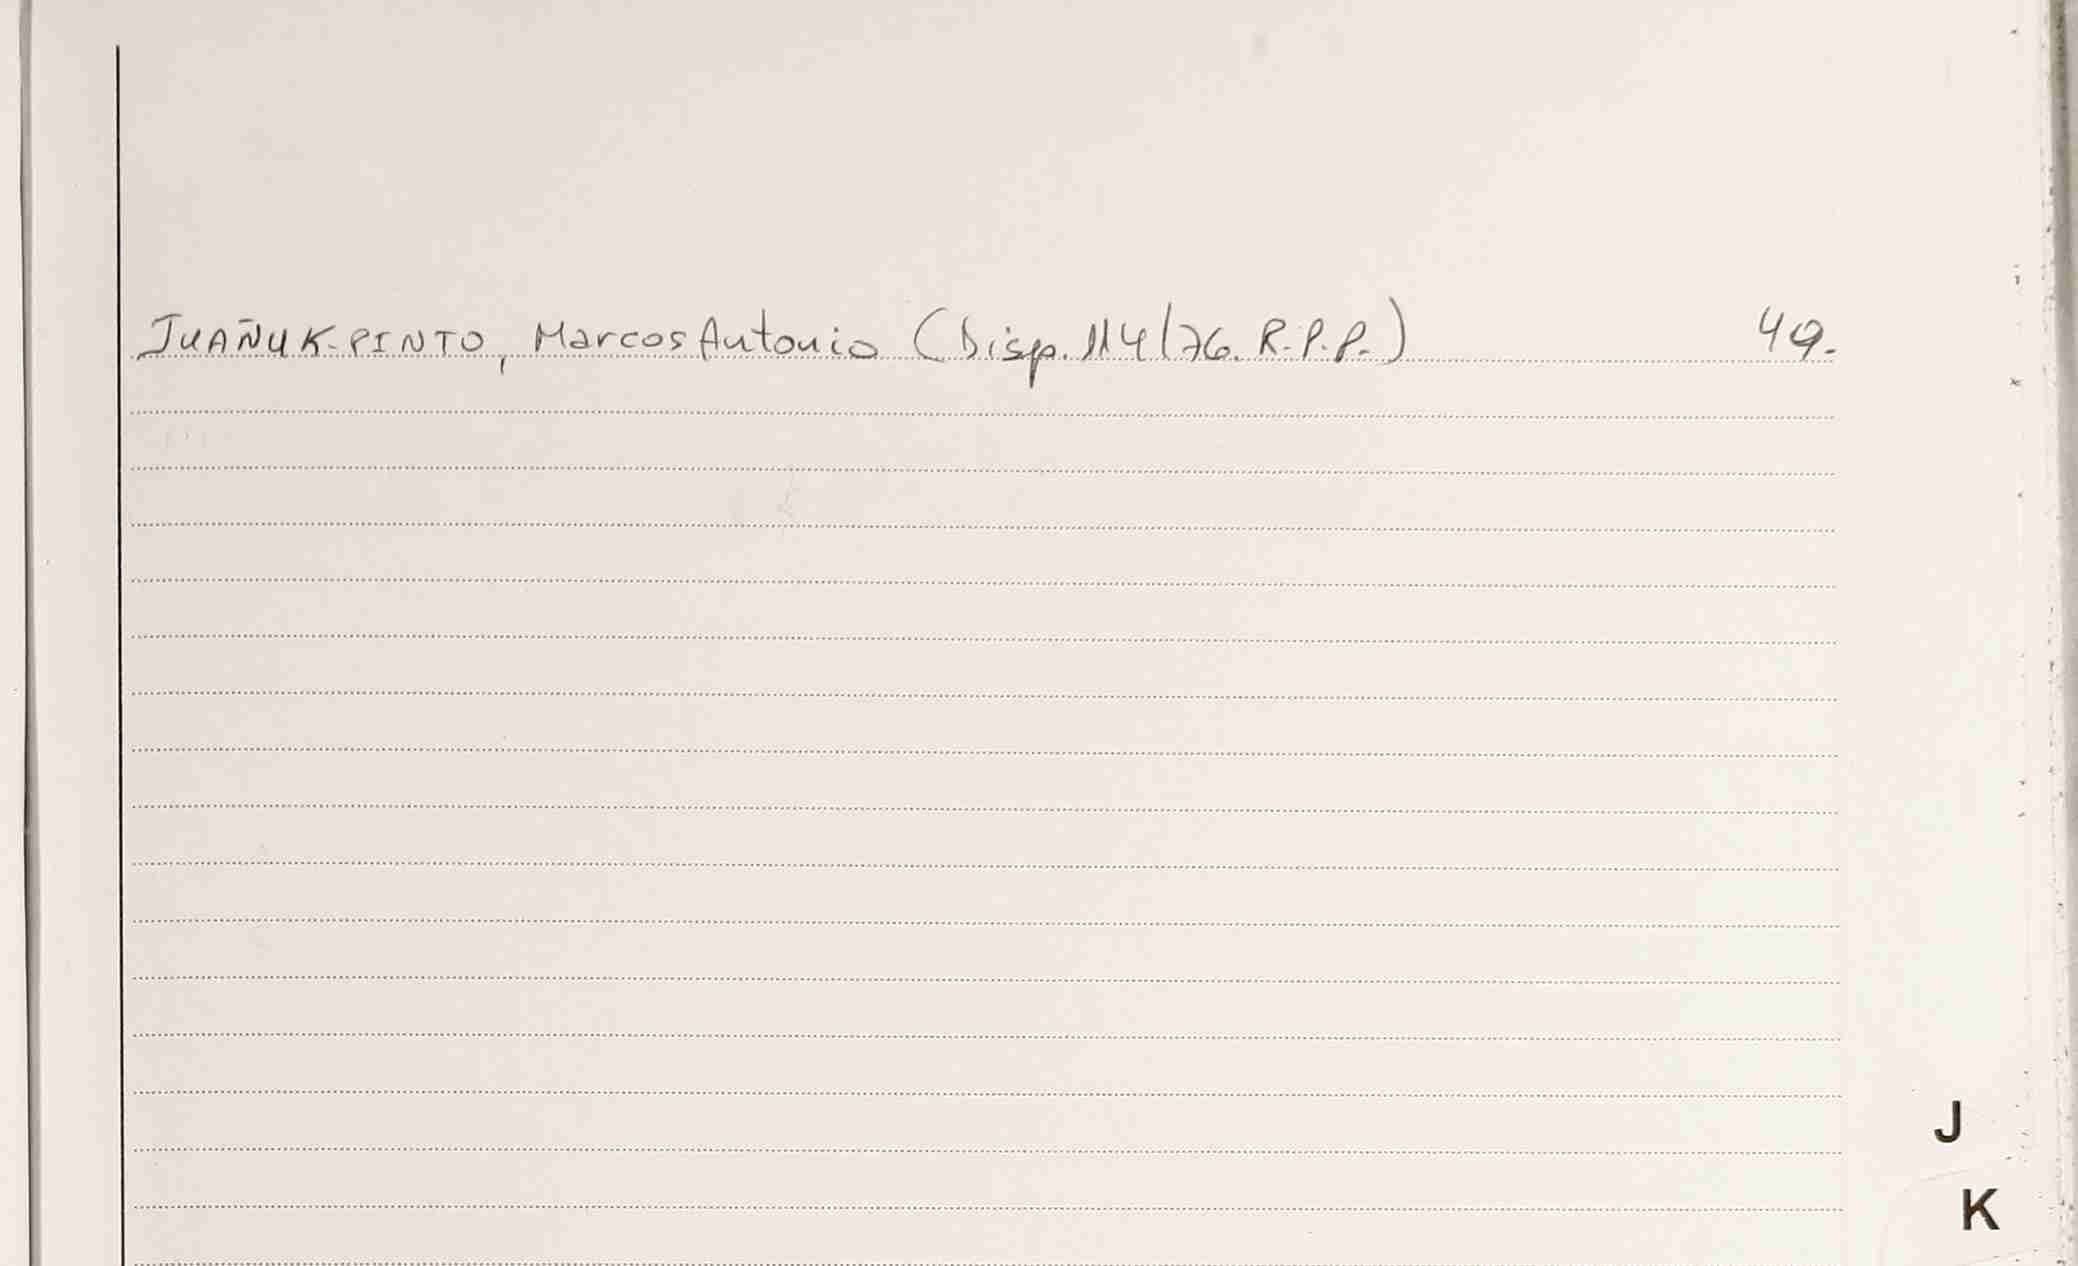 JUAÑUK-PINTO, Marcos Antonio (Disp. 114/76. R.P.P.) 49.
J
K